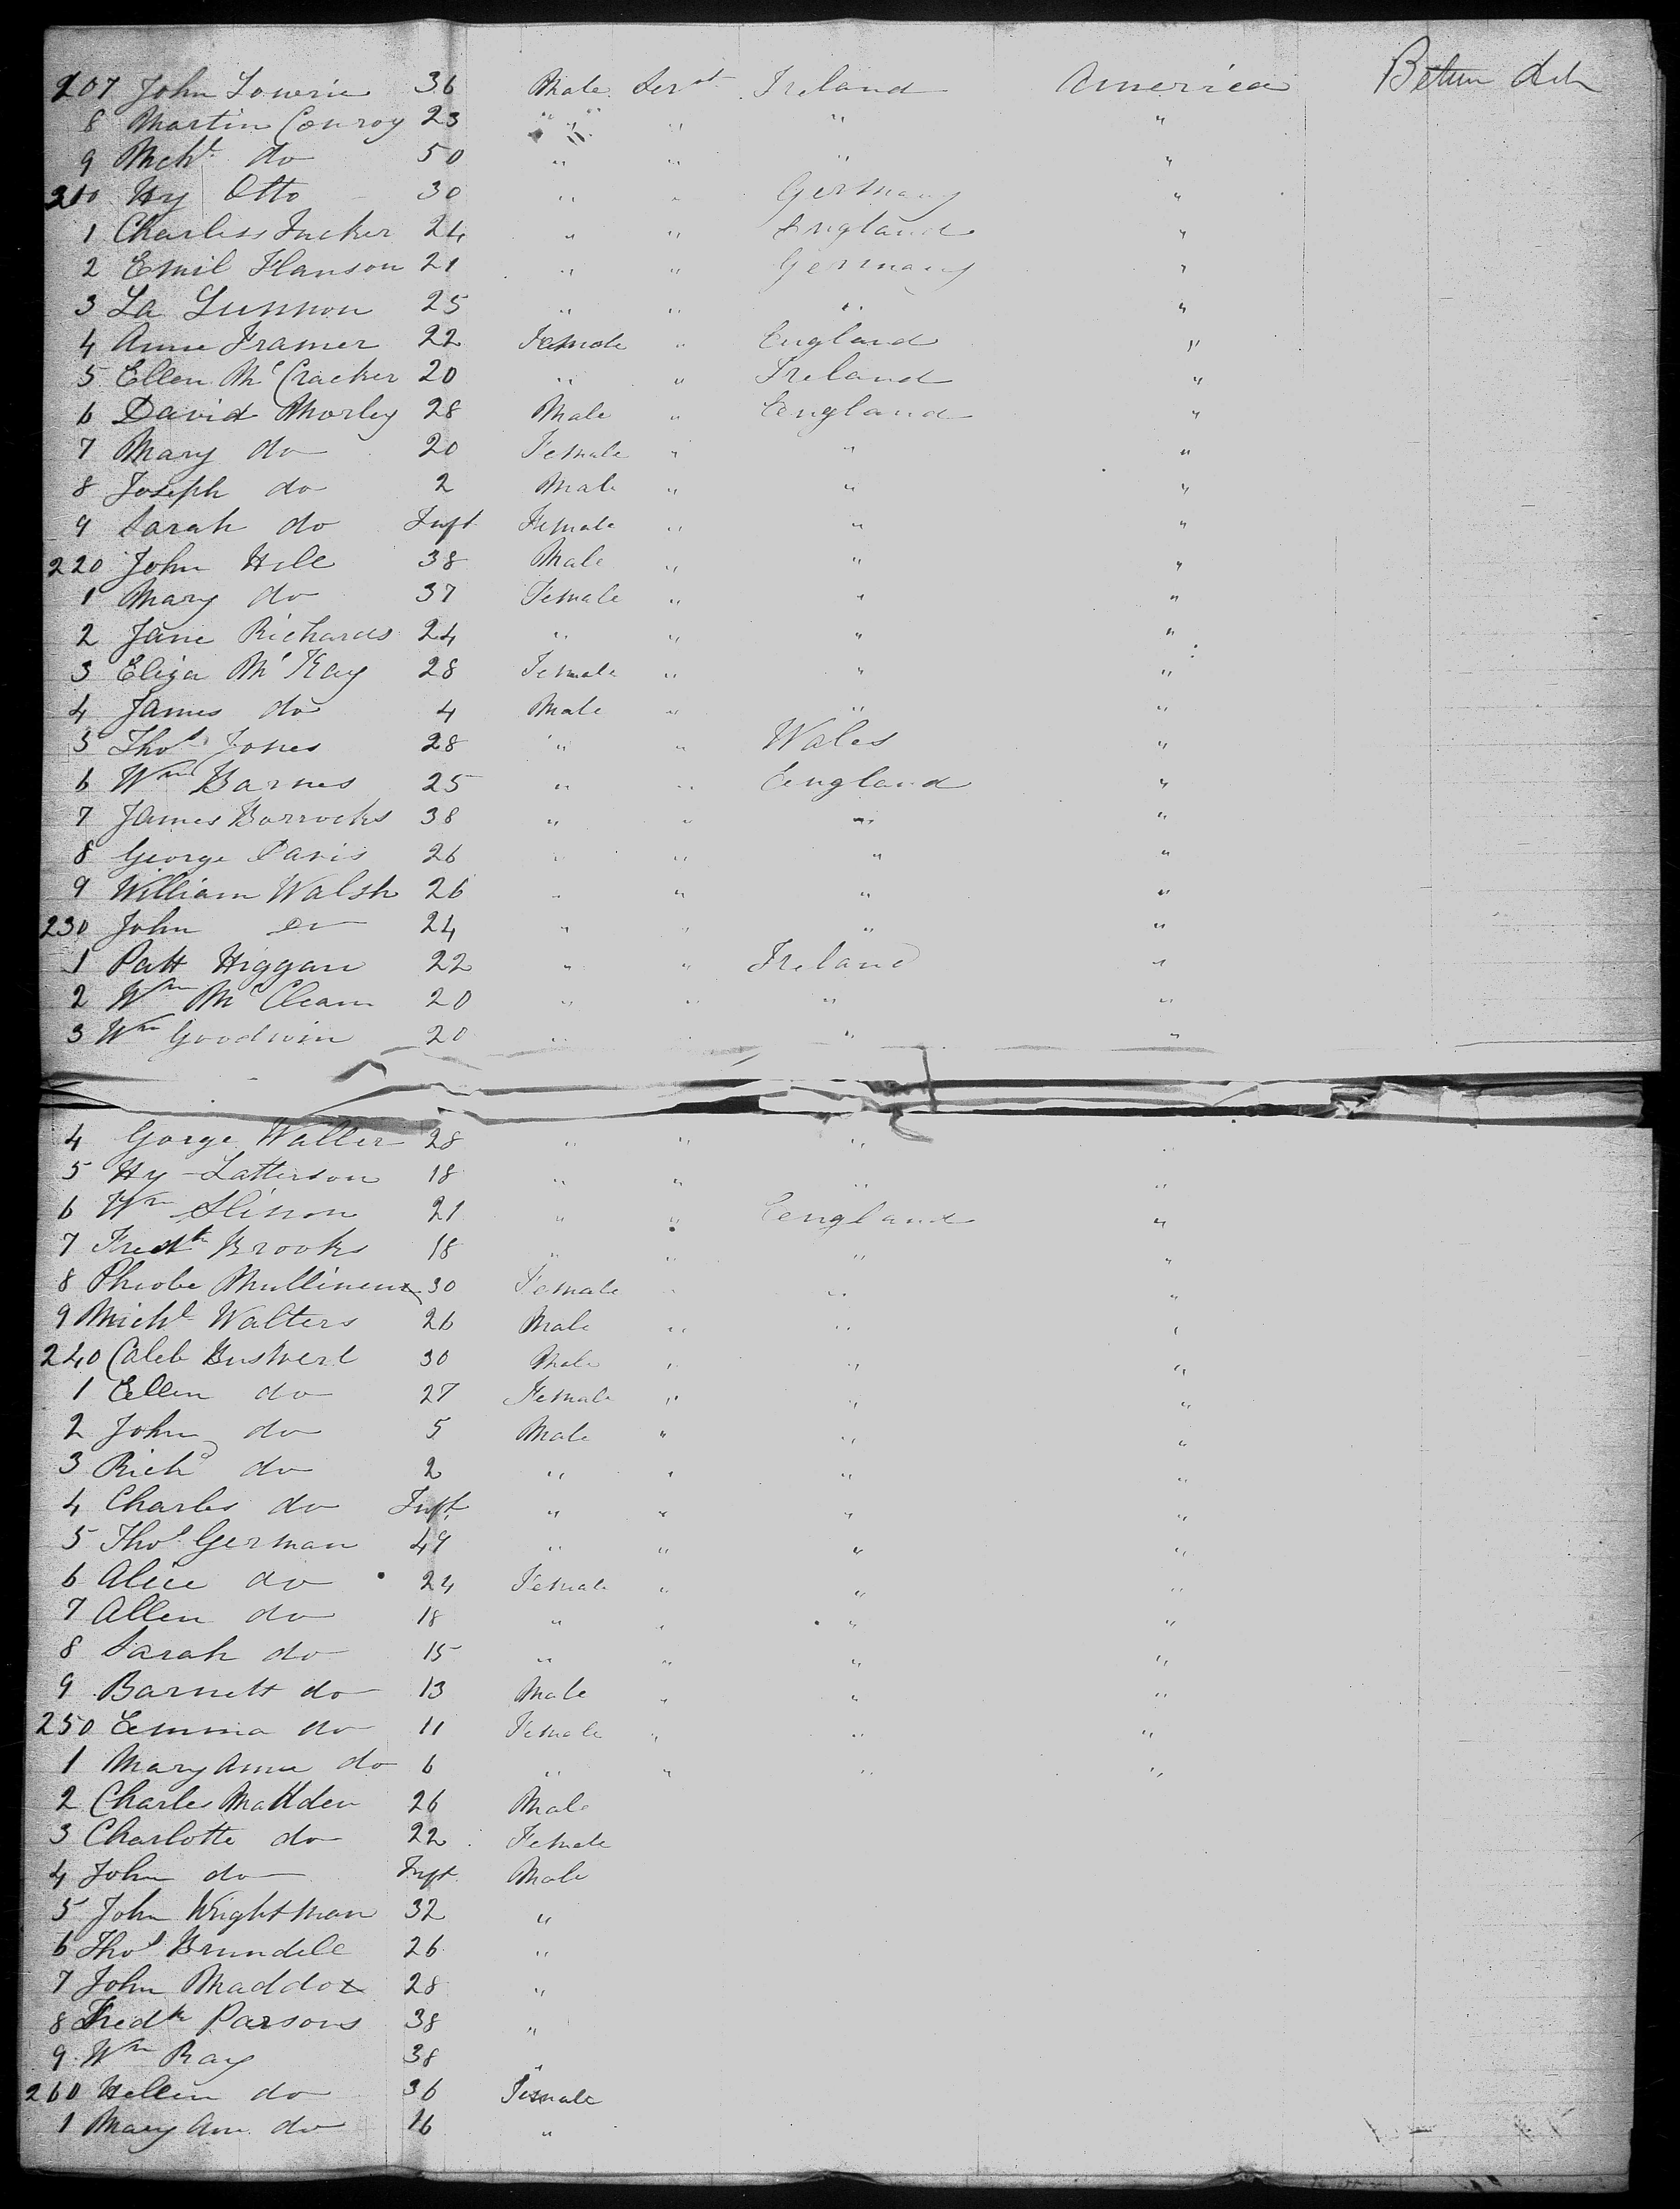 207 John Lowrie 36 Male Servt Ireland America Betwn deck
8 Martin Conroy 23 " " " "
9 Mchl do 50 " " " "
210 Hy Otto 30 " " Germany "
1 Charless Tucker 24 " " England "
2 Emil Hanson 21 " " Germany "
3 La Gunnon 25 " " " "
4 Anne Framer 22 Female " England "
5 Ellen McCracker 20 " " Ireland "
6 David Morley 28 Male " England "
7 Mary do 20 Female " " "
8 Joseph do 2 Male " " "
9 Sarah do Inft Female " " "
220 John Hill 38 Male " " "
1 Mary do 37 Female " " "
2 Jane Richards 24 " " " "
3 Eliza McKay 28 Female " " "
4 James do 4 Male " " "
5 Thos Jones 28 " " Wales "
6 Wm Barnes 25 " " England "
7 James Borrocks 38 " " " "
8 George Davis 26 " " " "
9 William Walsh 26 " " " "
230 John do 24 " " " "
1 Patt Higgan 22 " " Ireland "
2 Wm McCleam 20 " " " "
3 Wm Goodwin 20 " " " "
4 Gorge Waller 28 " " " "
5 Hy Latterson 18 " " " "
6 Wm 21 " " England "
7 Fredk Brooks 18 " " " "
8 Pheobe Mullineux 30 Female " " "
9 Michl Walters 26 Male " " "
240 Caleb 30 Male " " "
1 Ellen do 27 Female " " "
2 John do 5 Male " " "
3 Richd do 2 " " " "
4 Charles do Inft " " " "
5 Thos German 49 " " " "
6 Alice do 24 Female " " "
7 Allen do 18 " " " "
8 Sarah do 15 " " " "
9 Barnett do 13 Male " " "
250 Emma do 11 Female " " "
1 Mary Anne do 6 " " " "
2 Charles Mattden 26 Male
3 Charlotte do 22 Female
4 John do Inft Male
5 John Wrightman 32 "
6 Thos Brundell 26 "
7 John Maddox 28 "
8 Fredk Parsons 38 "
9 Wm Ray 38 "
260 Hellen do 36 Female
1 Mary Ann do 16 "